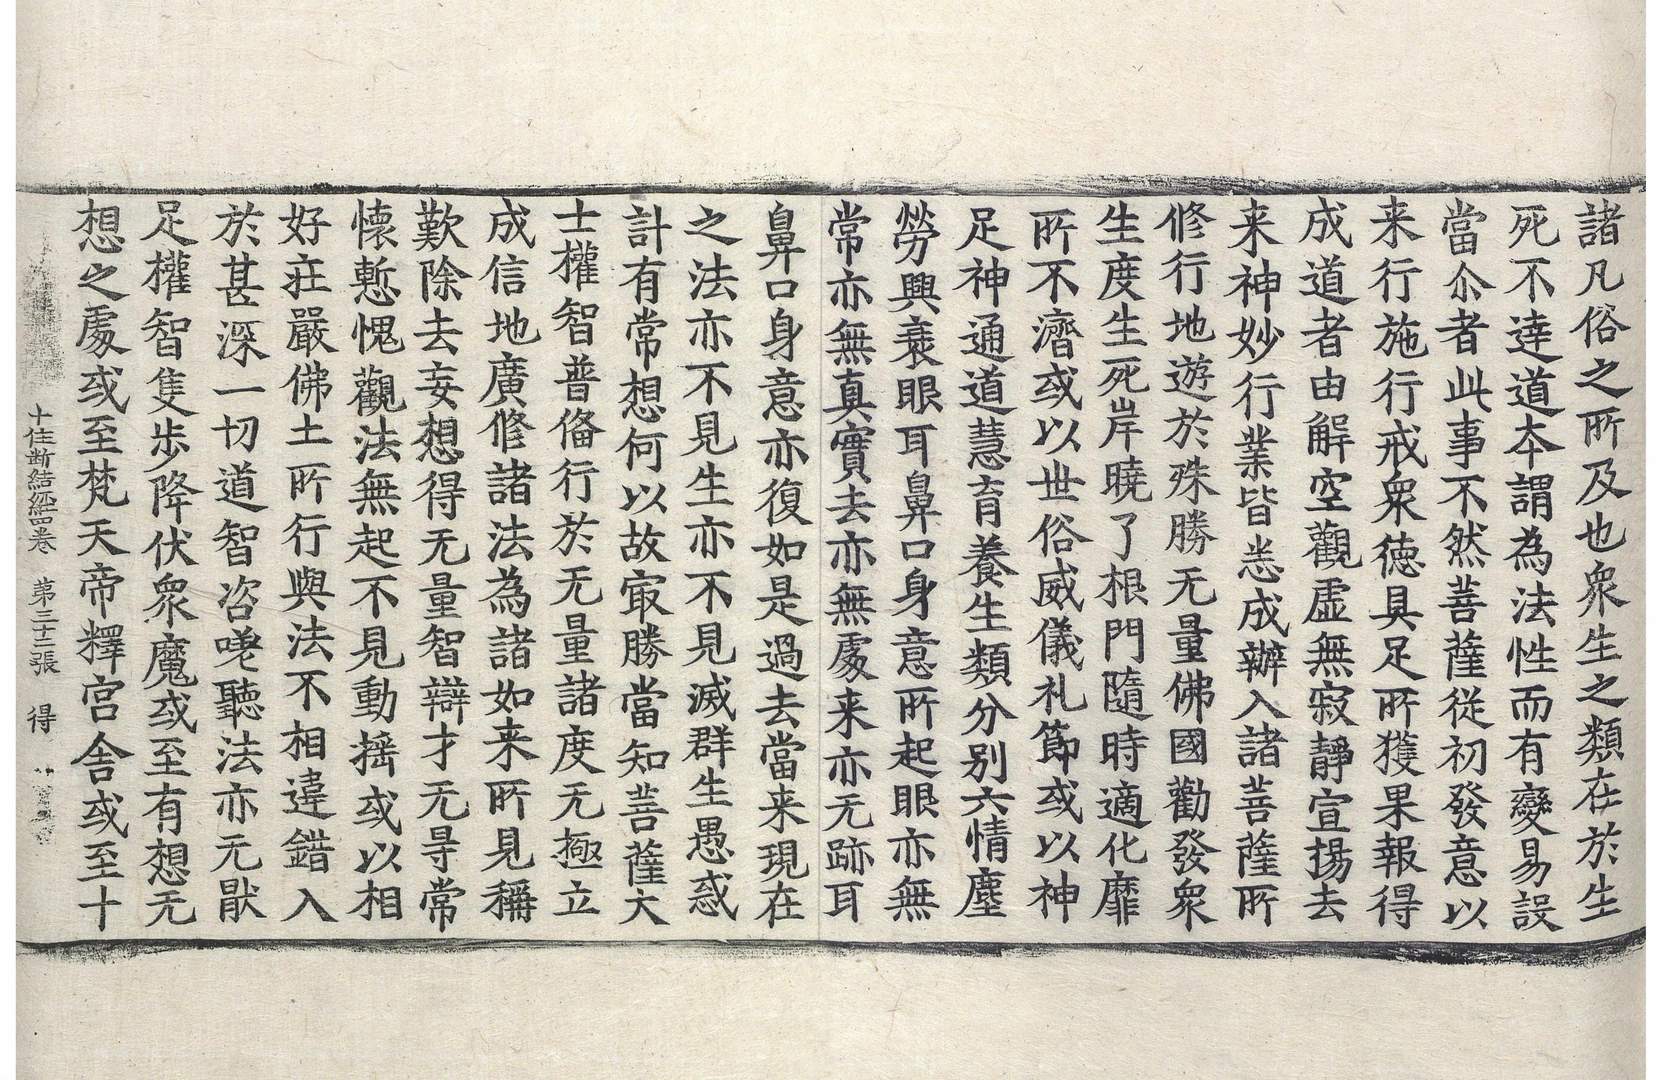 諸凡俗之所及也衆生之類在於生
死不達道本謂為法性而有變易設
當尒者此事不然菩薩從初發意以
来行施行戒衆徳具足所獲果報得
成道者由解空觀虛無寂靜宣揚去
来神妙行業皆悉成辦入諸菩薩所
修行地遊於殊勝无量佛國勸發衆
生度生死岸曉了根門隨時適化靡
所不濟或以世俗威儀礼節或以神
足神通道慧育養生類分别六情塵
勞興衰眼耳鼻口身意所起眼亦無
常亦無真實去亦無處来亦无跡耳
鼻口身意亦復如是過去當来現在
之法亦不見生亦不見滅群生愚惑
計有常想何以故㝡勝當知菩薩大
士權智普俻行於无量諸度无極立
成信地廣修諸法為諸如来所見稱
歎除去妄想得无量智辯才无㝵常
懷慙愧觀法無起不見動揺或以相
好莊嚴佛土所行與法不相違錯入
於甚深一切道智咨嗟聽法亦无猒
足權智隻歩降伏衆魔或至有想无
想之處或至梵天帝釋宫舍或至十
十住断結經四卷 第三十二張 得